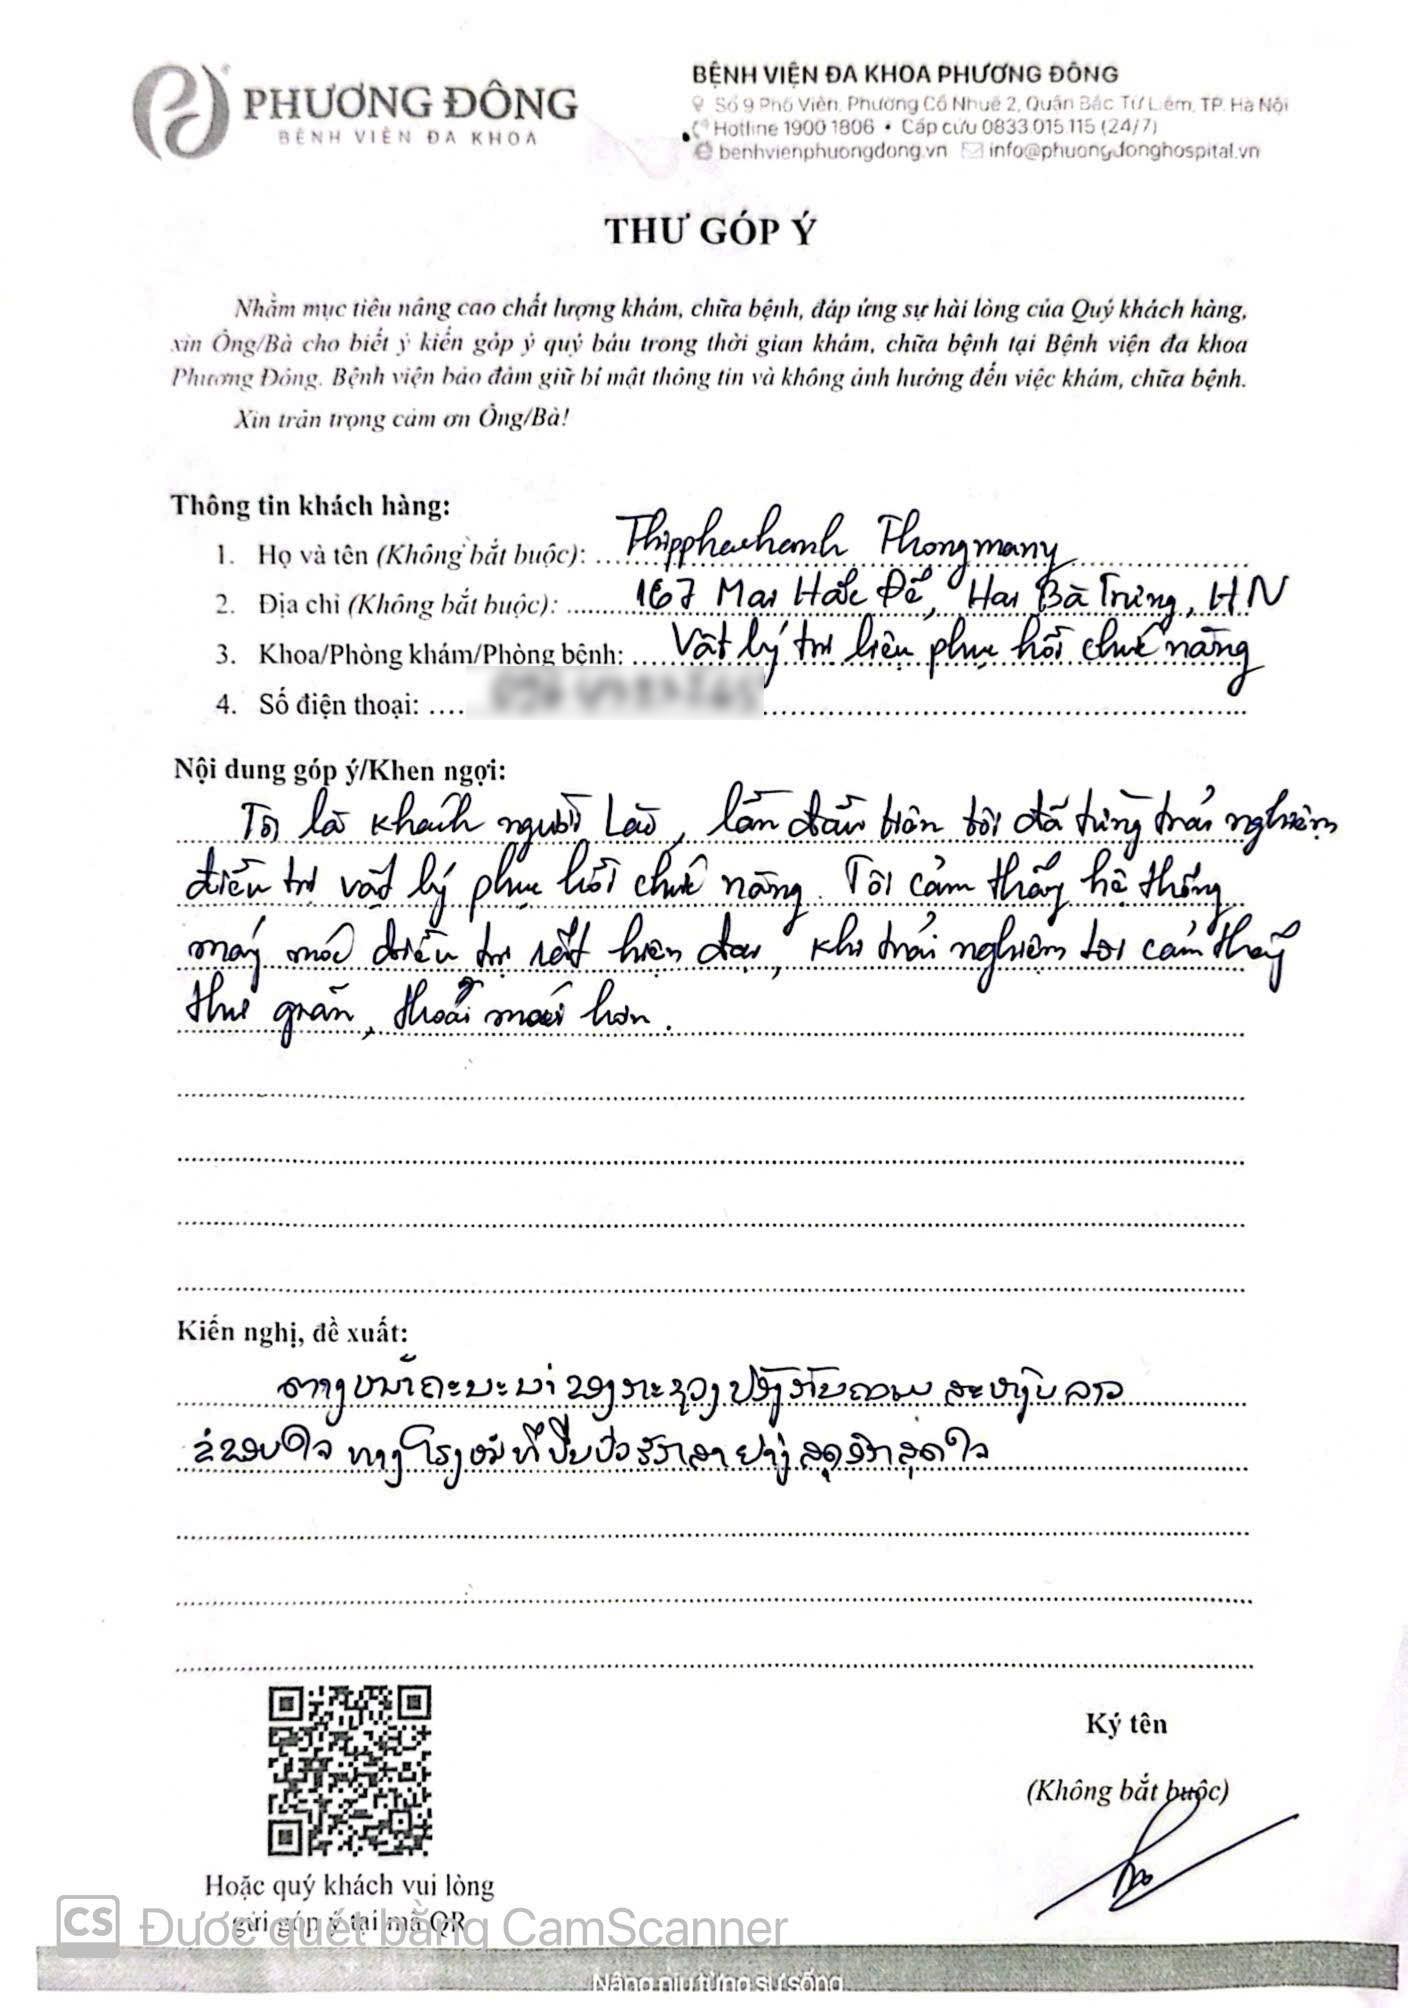 PHƯƠNG ĐÔNG
BỆNH VIỆN ĐA KHOA
BỆNH VIỆN ĐA KHOA PHƯƠNG ĐÔNG
Số 9 Phố Viên, Phường Cổ Nhuế 2, Quận Bắc Từ Liêm, TP. Hà Nội
Hotline 1900 1806 • Cấp cứu 0833 015 115 (24/7)
benhvienphuongdong.vn info@phuongdonghospital.vn
THƯ GÓP Ý
Nhằm mục tiêu nâng cao chất lượng khám, chữa bệnh, đáp ứng sự hài lòng của Quý khách hàng,
xin Ông/Bà cho biết ý kiến góp ý quý báu trong thời gian khám, chữa bệnh tại Bệnh viện đa khoa
Phương Đông. Bệnh viện bảo đảm giữ bí mật thông tin và không ảnh hưởng đến việc khám, chữa bệnh.
Xin trân trọng cảm ơn Ông/Bà!
Thông tin khách hàng:
1. Họ và tên (Không bắt buộc): Thongmany
2. Địa chỉ (Không bắt buộc): 167 Mai Hắc Đế, Hai Bà Trưng, HN
3. Khoa/Phòng khám/Phòng bệnh: Vật lý trị liệu phục hồi chức năng
4. Số điện thoại:
Nội dung góp ý/Khen ngợi:
Tôi là khách người Lào, lần đầu tiên tôi đã từng trải nghiệm
điều trị vật lý phục hồi chức năng. Tôi cảm thấy hệ thống
máy móc điều trị rất hiện đại, khi trải nghiệm tôi cảm thấy
thư giãn, thoải mái hơn.
Kiến nghị, đề xuất:
ຕາງໜ້າຄະນະນຳ ຂອງກະຊວງປ້ອງກັນຄວາມສະຫງົບ ລາວ
ຂໍຂອບໃຈ ທາງໂຣງໝໍທີ່ປິ່ນປົວຮັກສາຢ່າງສຸດອົກສຸດໃຈ
Ký tên
(Không bắt buộc)
Hoặc quý khách vui lòng
gửi góp ý tại mã QR
CS Được quét bằng CamScanner
Nâng niu từng sự sống